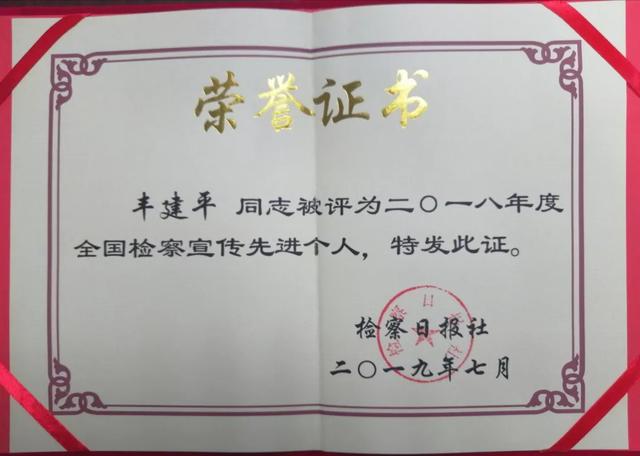 荣誉证书
丰建平 同志被评为二〇一八年度
全国检察宣传先进个人，特发此证。
检察日报社
检察日报社
二〇一九年七月